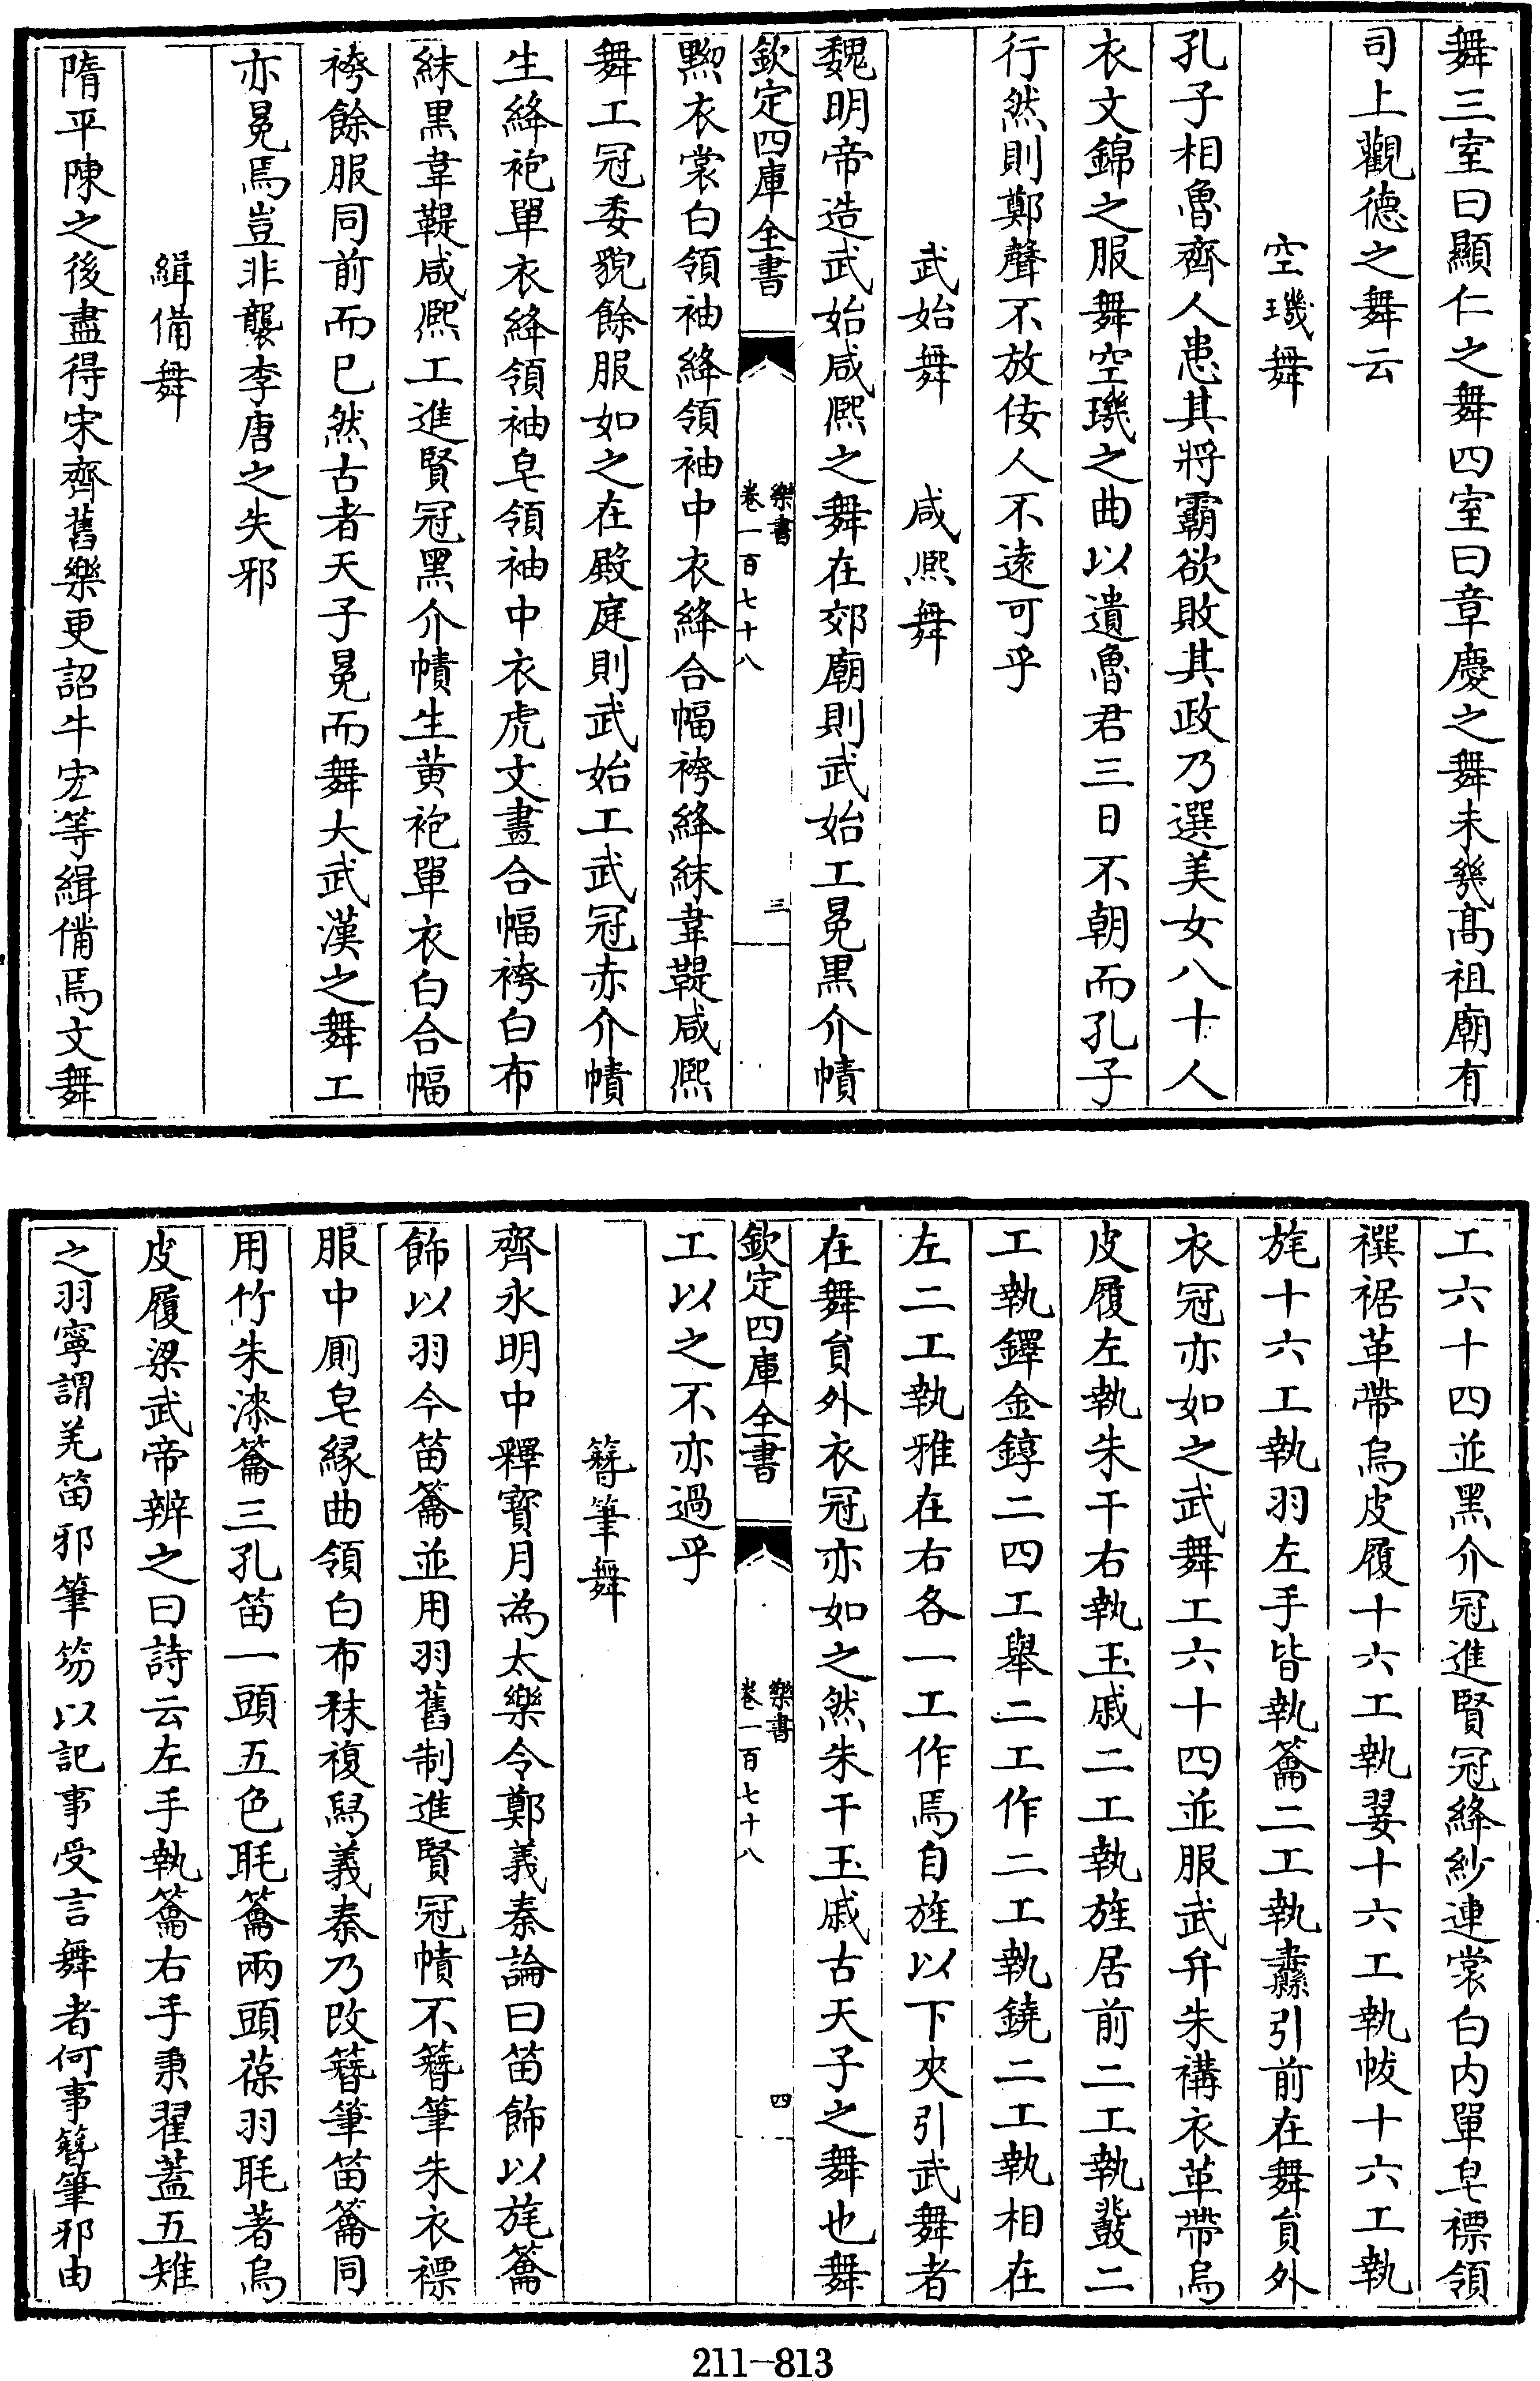 舞三室曰顯仁之舞四室曰章慶之舞未幾髙祖廟有
司上觀德之舞云
空璣舞
孔子相魯齊人患其將霸欲敗其政乃選美女八十人
衣文錦之服舞空璣之曲以遺魯君三日不朝而孔子
行然則鄭聲不放佞人不逺可乎
武始舞　咸熈舞
魏明帝造武始咸熈之舞在郊廟則武始工冕黒介幘
欽定四庫全書　樂書卷一百七十八　三
黝衣裳白領袖絳領袖中衣絳合幅袴絳袜韋鞮咸熈
舞工冠委貌餘服如之在殿庭則武始工武冠赤介幘
生絳袍單衣絳領袖皂領袖中衣虎文畫合幅袴白布
袜黒韋鞮咸熈工進賢冠黒介幘生黄袍單衣白合幅
袴餘服同前而已然古者天子冕而舞大武漢之舞工
亦冕焉豈非襲李唐之失邪
緝備舞
隋平陳之後盡得宋齊舊樂更詔牛宏等緝備焉文舞
工六十四並黒介冠進賢冠絳紗連裳白内單皂褾領
襈裾革帶烏皮履十六工執翣十六工執帗十六工執
旄十六工執羽左手皆執籥二工執纛引前在舞員外
衣冠亦如之武舞工六十四並服武弁朱褠衣革帶烏
皮履左執朱干右執玉戚二工執旌居前二工執鼗二
工執鐸金錞二四工舉二工作二工執鐃二工執相在
左二工執雅在右各一工作焉自旌以下夾引武舞者
在舞員外衣冠亦如之然朱干玉戚古天子之舞也舞
欽定四庫全書　樂書卷一百七十八　四
工以之不亦過乎
簪筆舞
齊永明中釋寳月為太樂令鄭義泰論曰笛飾以旄籥
飾以羽今笛籥並用羽舊制進賢冠幘不簪筆朱衣褾
服中厠皂縁曲領白布袜複舄義泰乃改簪筆笛籥同
用竹朱漆籥三孔笛一頭五色毦籥兩頭葆羽毦著烏
皮履梁武帝辨之曰詩云左手執籥右手秉翟蓋五雉
之羽寧謂羌笛邪筆笏以記事受言舞者何事簪筆邪由
211-813